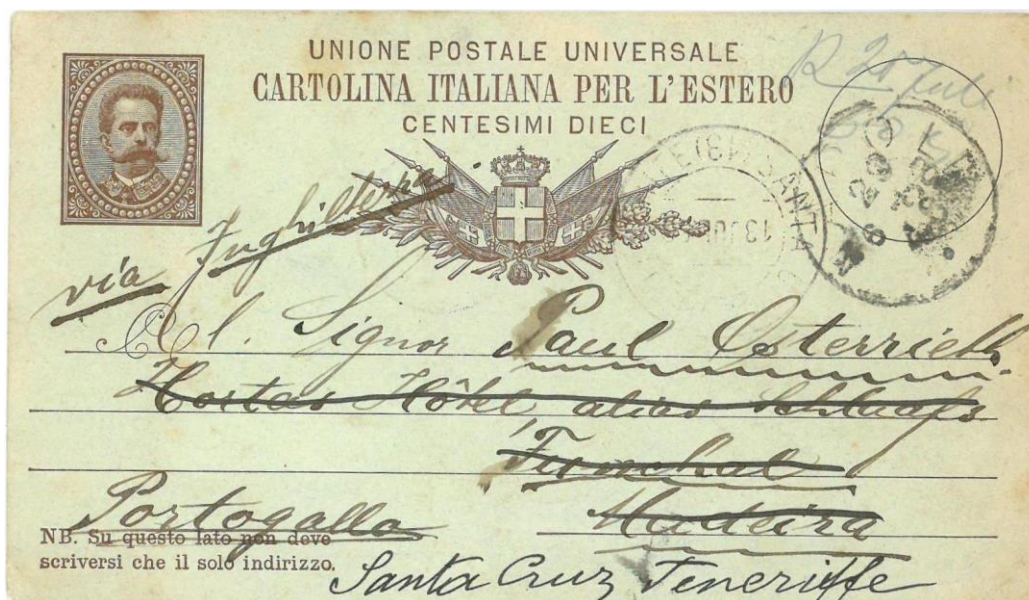 UNIONE POSTALE UNIVERSALE
CARTOLINA ITALIANA PER L'ESTERO
CENTESIMI DIECI
R 20 Juli
SANTA
13 JUL
via Inghilterra
Al Signor Paul Osterrieth
Hortas Hôtel alias
Funchal
Portogallo Madeira
NB. Su questo lato non deve
scriversi che il solo indirizzo.
Santa Cruz Teneriffe